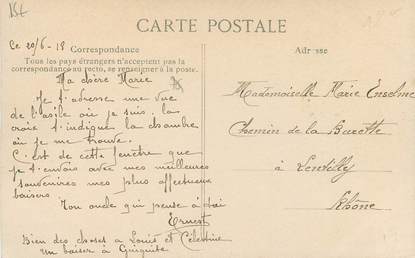 CARTE POSTALE
Ce 20/6-18
Correspondance
Tous les pays étrangers n'acceptent pas la
correspondance au recto, se renseigner à la poste.
Ma chère Marie
Je t'adresse une vue
de l'asile où je suis. la
croix t'indique la chambre
où je me trouve.
C'est de cette fenêtre que
je t'envois avec mes meilleures
souvenirs mes plus affectueux
baisers.
Ton oncle qui pense à toi
Ernest
Bien des choses a Louis et Célestine
un baiser à Guiguite
Adresse
Mademoiselle Marie Enselme
Chemin de la Barette
à Lentilly
Rhône